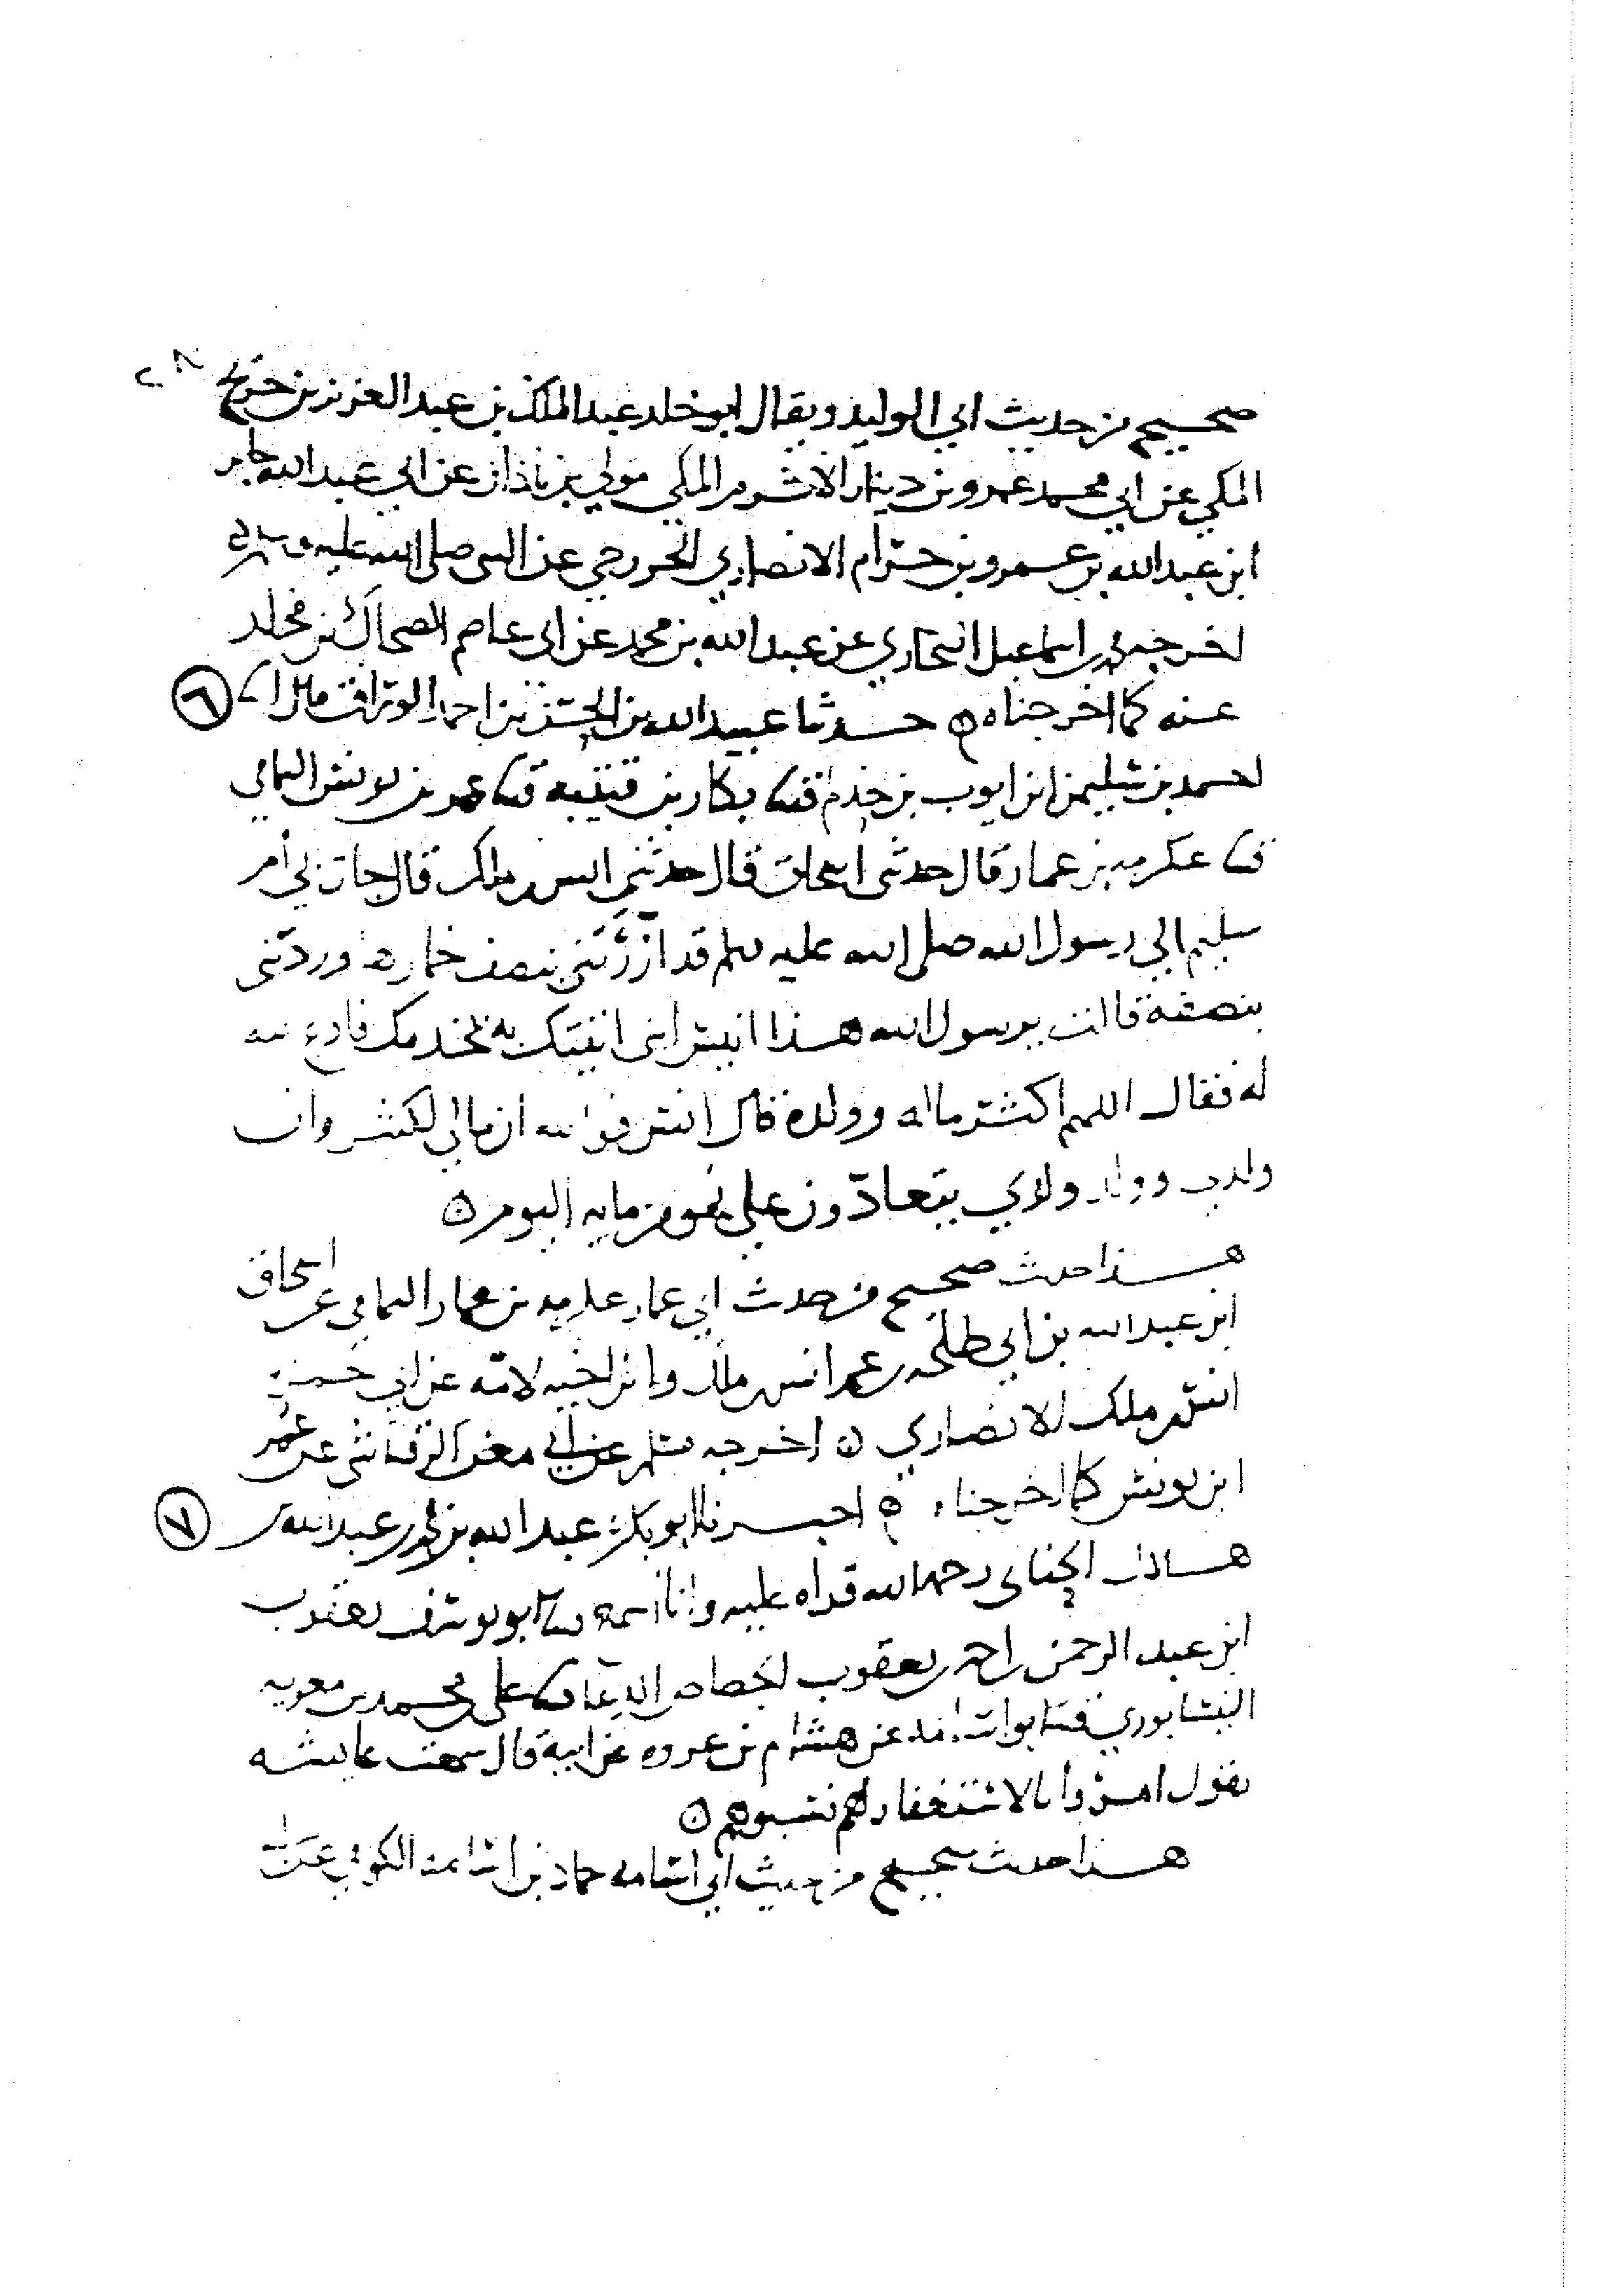 ٢٨
صحيح من حديث ابي الوليد ويقال ابو خلد عبد الملك بن عبد العزيز بن جريج
المكي عن ابي محمد عمرو بن دينار الاثرم المكي مولى بن باذان عن ابي عبد الله جابر
ابن عبد الله بن عمرو بن حرام الانصاري الخزرجي عن النبي صلى الله عليه وسلم
اخرجه بن اسماعيل البخاري عن عبد الله بن محمد عن ابي عاصم الضحاك بن مخلد
عنه كما اخرجناه ٥ حدثنا عبيد الله بن الحسن بن احمد الوراق ٦
احمد بن سليمن ابن ايوب بن حذلم قثنا بكار بن قتيبة قثنا عمر بن يونس اليمامي
قثنا عكرمه بن عمار قال حدثني اسحاق قال حدثني انس بن ملك قال جات بي ام
سليم الي رسول الله صلى الله عليه وسلم قد ازرتني بنصف خمارها وردتني
بنصفة قالت يرسول الله هذا انيس ابني اتيتك به يخدمك فادع الله
له فقال اللهم اكثر ماله وولده قال انس فوالله ان مالي لكثير وان
ولدي وولد ولدي يتعادون على نحو من مايه اليوم ٥
هذا حديث صحيح من حديث ابي عمار عكرمه بن عمار اليمامي عن اسحاق
ابن عبد الله بن ابي طلحه عن عمه انس بن ملك وابن اخيه لامه عن ابي حمزة
انس بن ملك الانصاري ٥ اخرجه مسلم عن ابي معن الرقاشي عن عمر
ابن يونس كما اخرجناه ٥ اخبرنا ابو بكر عبد الله بن محمد بن عبد الله بن ٧
هلال الحنائي رحمه الله قراه عليه وانا اسمع قثنا ابو يوسف يعقوب
ابن عبد الرحمن بن احمد بن يعقوب الجصاص الدعا قثنا علي بن محمد بن معويه
النيسابوري قثنا ابو اسامه عن هشام بن عروه عن ابيه قال سمعت عايشه
تقول امروا بالاستغفار لهم فسبوهم ٥
هذا حديث صحيح من حديث ابي اسامه حماد بن اسامة الكوفي عن